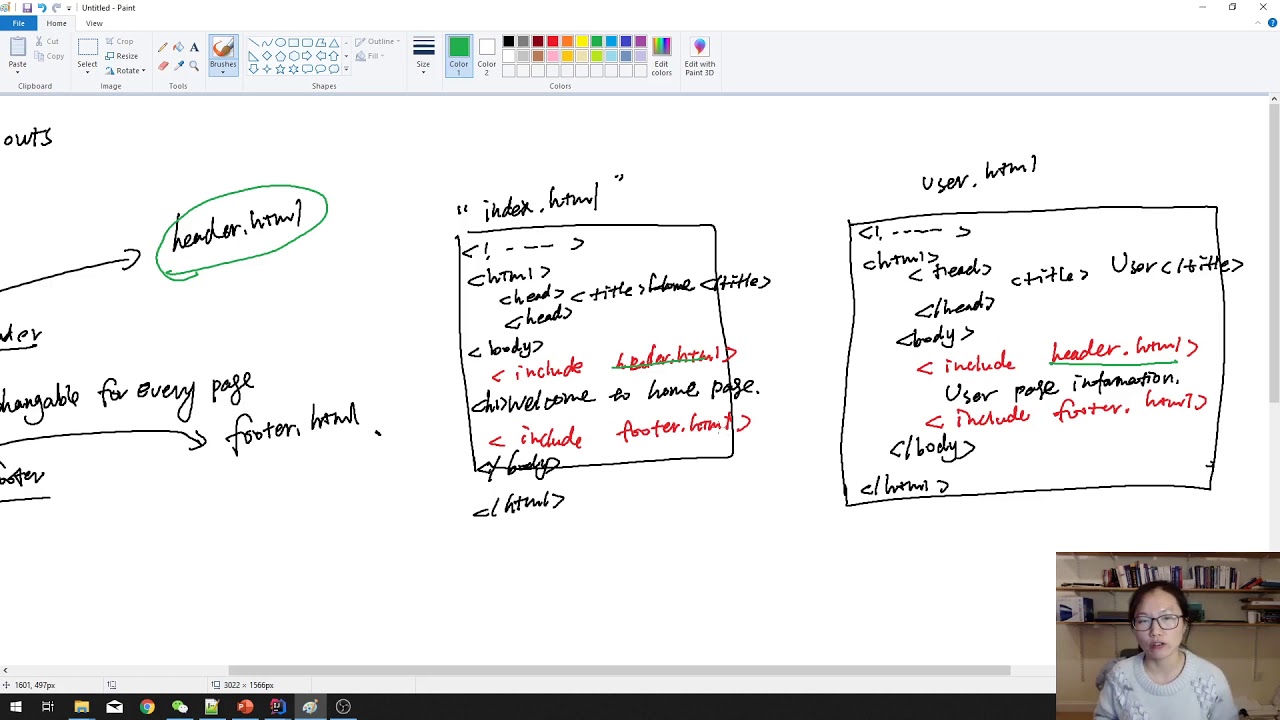 Untitled - Paint
File
Home
View
Paste
Cut
Copy
Clipboard
Select
Crop
Resize
Rotate
Image
A
Tools
Brushes
Outline
Fill
Shapes
Size
Color 1
Color 2
Edit colors
Colors
Edit with Paint 3D
outs
header.html
changable for every page
footer.html
" index.html "
<! - -- >
<html>
<head> <title> Home </title>
<head>
<body>
< include header.html >
<h1>Welcome to home page.
< include footer.html >
</body>
</html>
user.html
<! ---- >
<html>
<head> <title> User </title>
</head>
<body>
< include header.html >
User page information.
< include footer.html>
</body>
</html>
1601, 497px
3022 × 1566px